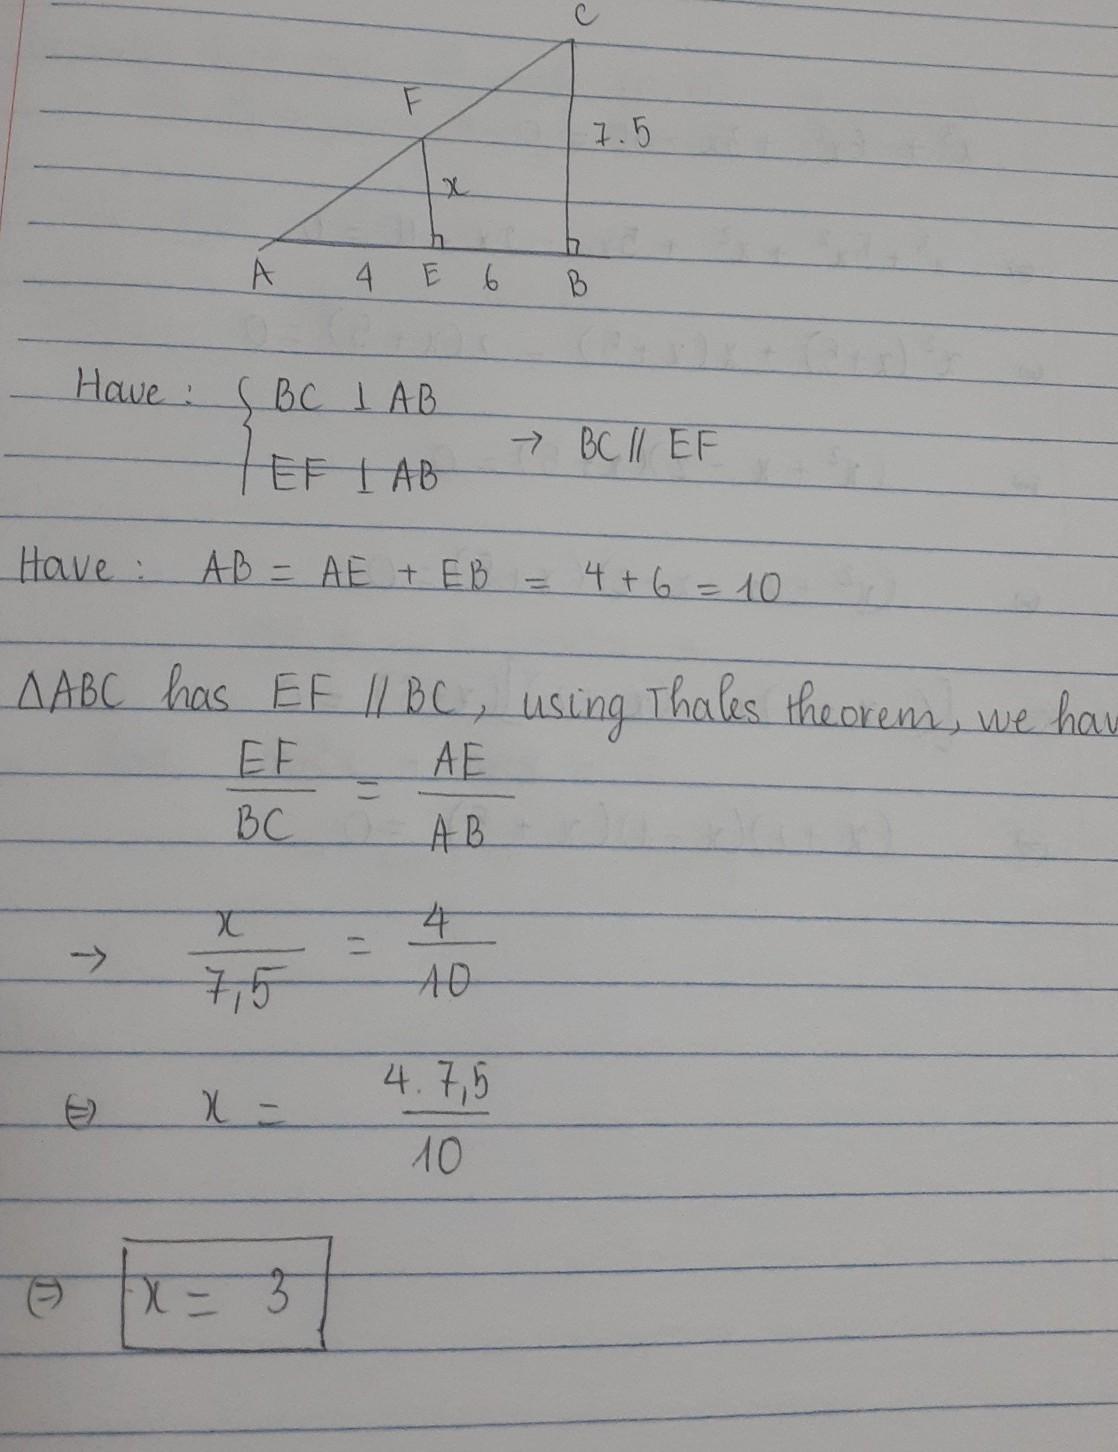 C
F
7.5
x
A 4 E 6 B
Have : { BC ⊥ AB
EF ⊥ AB → BC // EF
Have : AB = AE + EB = 4 + 6 = 10
ΔABC has EF // BC, using Thales theorem, we hav
EF/BC = AE/AB
→ x/7,5 = 4/10
⇔ x = 4.7,5/10
⇔ x = 3